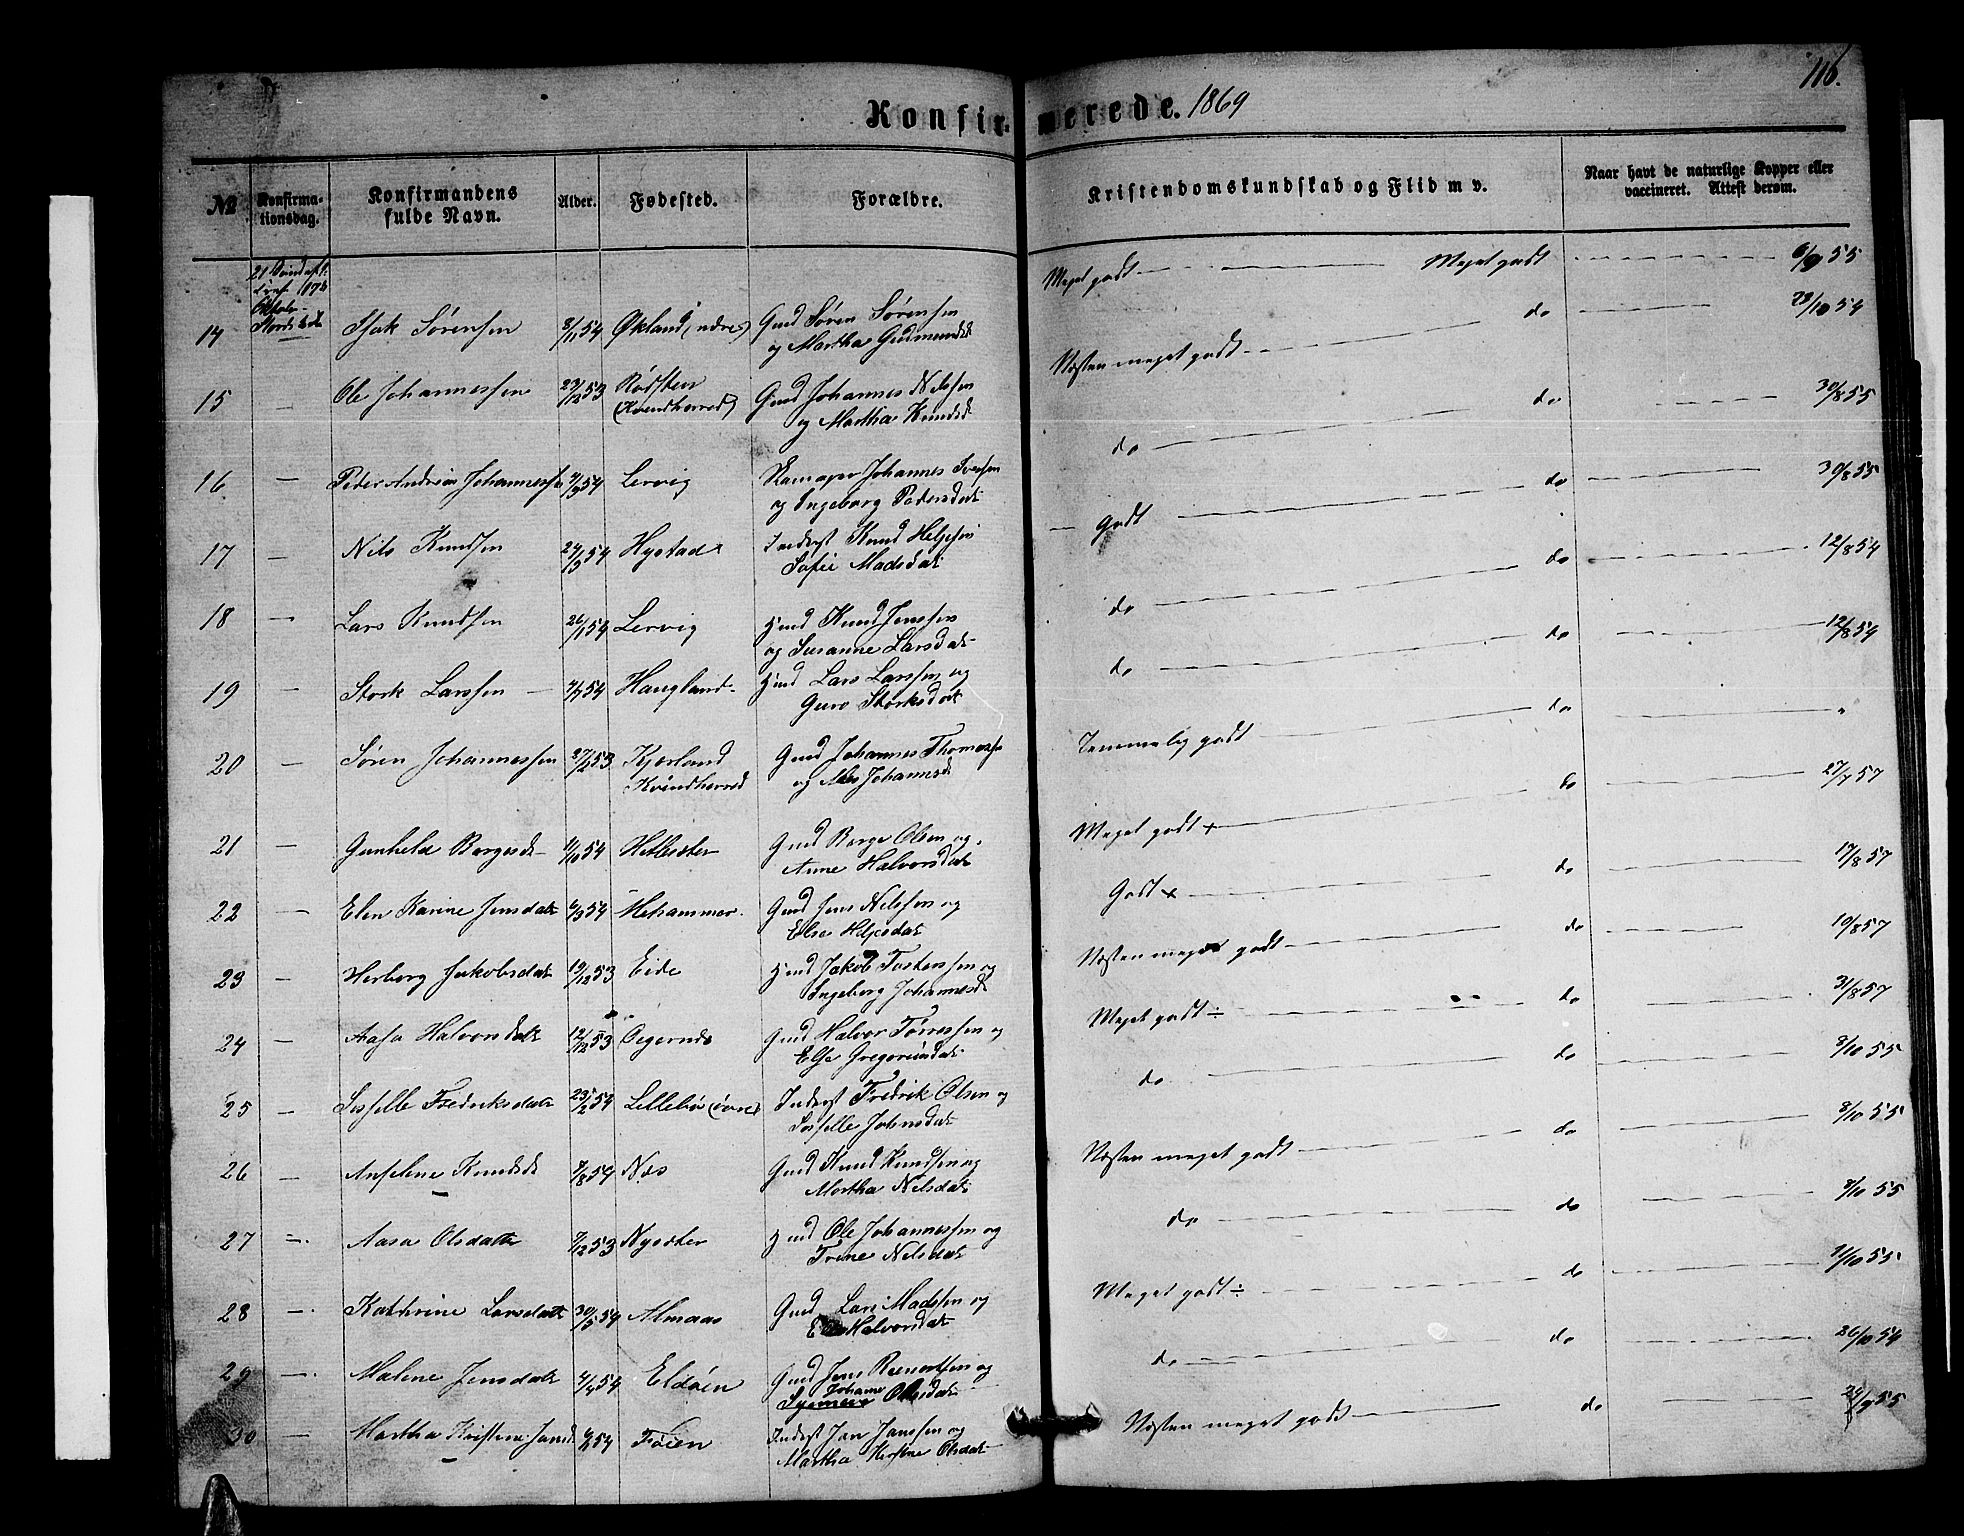 116.
Konfirmerede. 1869
№
Konfirma-
tionsdag.
Konfirmandens
fulde Navn.
Alder.
Fødested.
Forældre.
Kristendomskundskab og Flid m v.
Naar havt de naturlige Kopper eller
vaccineret. Attest derom.
21 Sønd eft.
Oktober
14 Isak Sørensen 8/11 54 Økland (nedre) Gmd Søren Sørensen
og Martha Gudmundsdt
Meget godt — Meget godt — 6/9 55
15 — Ole Johannessen 23/12 53
(Kvindherred) Gmd Johannes Nilssen
og Martha Knudsdt
Næsten meget godt — do — 23/10 54
16 — Peder Andreas Johannessen 7/9 54 Lervig Johannes Iversen
og Ingeborg Pedersdat
do — do — 30/8 55
17 — Nils Knudsen 24/3 54 Hystad Inderst Knud Helgesen
Sofie Madsdat
Godt — do — 30/8 55
18 — Lars Knudsen 26/1 54 Lervig Hmd Knud Jenssen
og Susanne Larsdat
do — do — 12/8 54
19 — Stork Larssen — 7/7 54 Haugland Hmd Lars Larssen og
Guro Storksdat
do — do — 12/8 54
20 — Søren Johannessen 27/12 53 Kjærland
Kvindherred Gmd Johannes Thomassen
og Johannesdt
Temmelig godt — do — "
21 — Gunhela Borgesdt 11/10 54 Hetlesæter Gmd Borge Olsen og
Anne Halvorsdat
Meget godt + — do — 27/7 57
22 — Elen Karine Jensdat 6/3 54 Mehammer Gmd Jens Nilssen og
Else Helgesdat
Godt + — do — 17/8 57
23 — Herborg Jakobsdat 19/12 53 Eide Hmd Jakob Tostensen og
Ingeborg Johannesdt
Næsten meget godt — do — 10/8 57
24 — Aasa Halvorsdatt 12/12 53 Gmd Halvor Tørressen og
Else Gregoriusdat
Meget godt ÷ — do — 31/8 57
25 — Sisselle Fredriksdatt 23/2 54 Lillebø (øvre) Inderst Fredrik Olsen og
Sisselle Johnsdat
do — do — 8/10 55
26 — Anselene Knudsdt 7/8 54 Næs Gmd Knud Knudsen og
Martha Nilsdat
Næsten meget godt — do — 8/10 55
27 — Aasa Olsdatter 7/12 53 Nysæter Hmd Ole Johannessen og
Trine Nilsdat
do — do — 8/10 55
28 — Kathrine Larsdatt 30/5 54 Almaas Gmd Lars Madssen og
Halvorsdat
Meget godt ÷ — do — 11/10 55
29 — Malene Jensdatt 4/4 54 Eldøen Gmd Jens Rasmussen og
Johanne Olsdat
do — do — 26/10 54
30 — Martha Kristine Jansd Føien Inderst Jan Janssen og
Martha Kirstine Olsdat
Næsten meget godt — do — 24/9 55